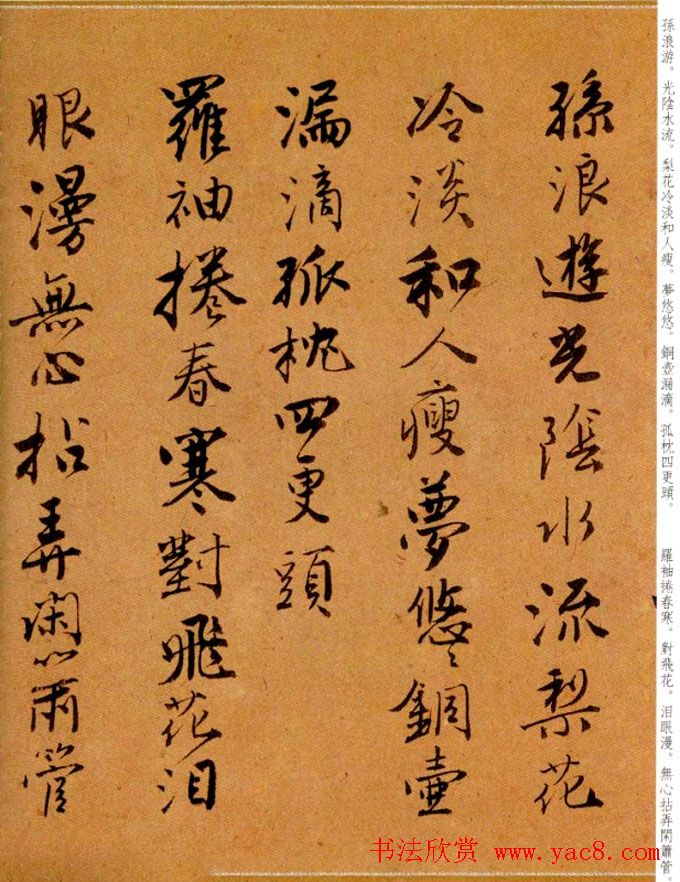 孫浪游。光陰水流。梨花冷淡和人瘦。夢悠悠。銅壺漏滴。孤枕四更頭。
羅袖捲春寒。對飛花。泪眼漫。無心拈弄閑簫管。
孫浪遊光陰水流梨花
冷淡和人瘦夢悠〻銅壺
漏滴孤枕四更頭
羅袖捲春寒對飛花泪
眼漫無心拈弄閑簫管
书法欣赏 www.yac8.com